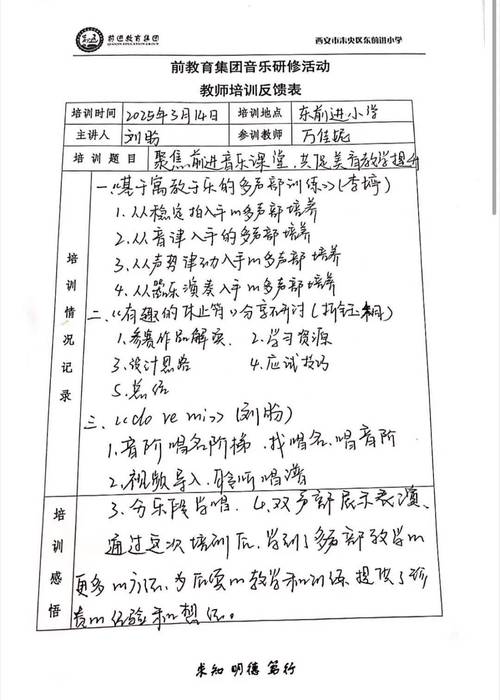 前进教育集团
西安市未央区东前进小学
前教育集团音乐研修活动
教师培训反馈表
培训时间 2025年3月14日 培训地点 东前进小学
主讲人 刘盼 参训教师 万佳妮
培训题目 聚焦前进音乐课堂,共促美育教学提升
培训情况记录
一、“基于寓教于乐的多声部训练》(李婷)
1.从稳定拍入手的多声部培养
2.从音律入手的多声部培养
3.从声势律动入手的多声部培养
4.从器乐演奏入手的多声部培养
二、《有趣的休止符》分享研讨(
1.参赛作品解读. 2.学习资源
3.设计思路 4.应试技巧
5.总结
三、《do re mi》(刘盼)
1.音阶唱名阶梯.找唱名.唱音阶
2.视频导入.聆听唱谱
培训感悟
3.分乐段学唱. 4.双声部展示表演.
通过这次培训后,学到了多声部教学的
更多的方法,为后续的教学和训练提供了
的经验和想法。
求知 明德 笃行